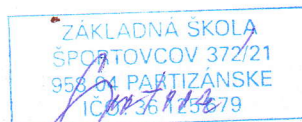 ZÁKLADNÁ ŠKOLA
ŠPORTOVCOV 372/21
958 04 PARTIZÁNSKE
IČO: 36125679